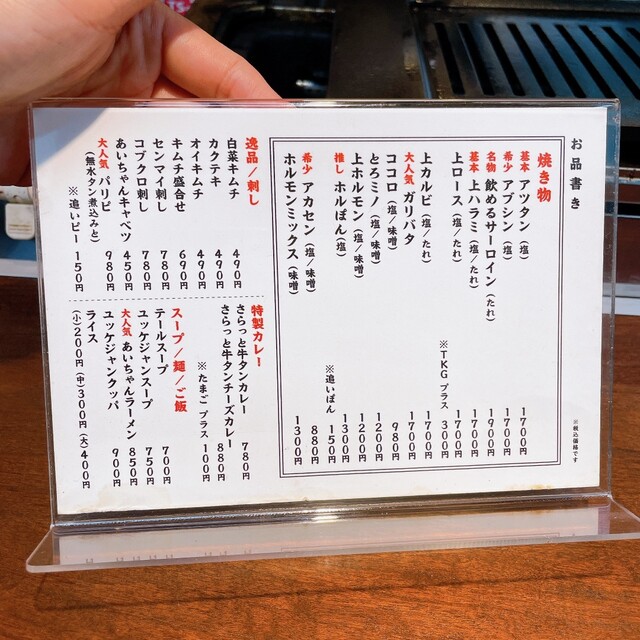 お品書き
※税込価格です
焼き物
基本 アツタン（塩） 1700円
希少 アブシン（塩） 1700円
名物 飲めるサーロイン（たれ） 1900円
基本 上ハラミ（塩／たれ） 1700円
上ロース（塩／たれ） 1700円
※TKGプラス 300円
上カルビ（塩／たれ） 1700円
大人気 ガリバタ 1700円
ココロ（塩／味噌） 980円
とろミノ（塩／味噌） 1200円
上ホルモン（塩／味噌） 1200円
推し ホルぽん（塩） 1300円
※追いぽん 150円
希少 アカセン（塩／味噌） 880円
ホルモンミックス（味噌） 1300円
逸品／刺し
白菜キムチ 490円
カクテキ 490円
オイキムチ 490円
キムチ盛合せ 690円
センマイ刺し 780円
コブクロ刺し 780円
あいちゃんキャベツ 450円
大人気 パリピ 980円
（無水タン煮込みと）
※追いピー 150円
特製カレー
さらっと牛タンカレー 780円
さらっと牛タンチーズカレー 880円
※たまごプラス 100円
スープ／麺／ご飯
テールスープ 700円
ユッケジャンスープ 750円
大人気 あいちゃんラーメン 850円
ユッケジャンクッパ 900円
ライス
（小）200円（中）300円（大）400円